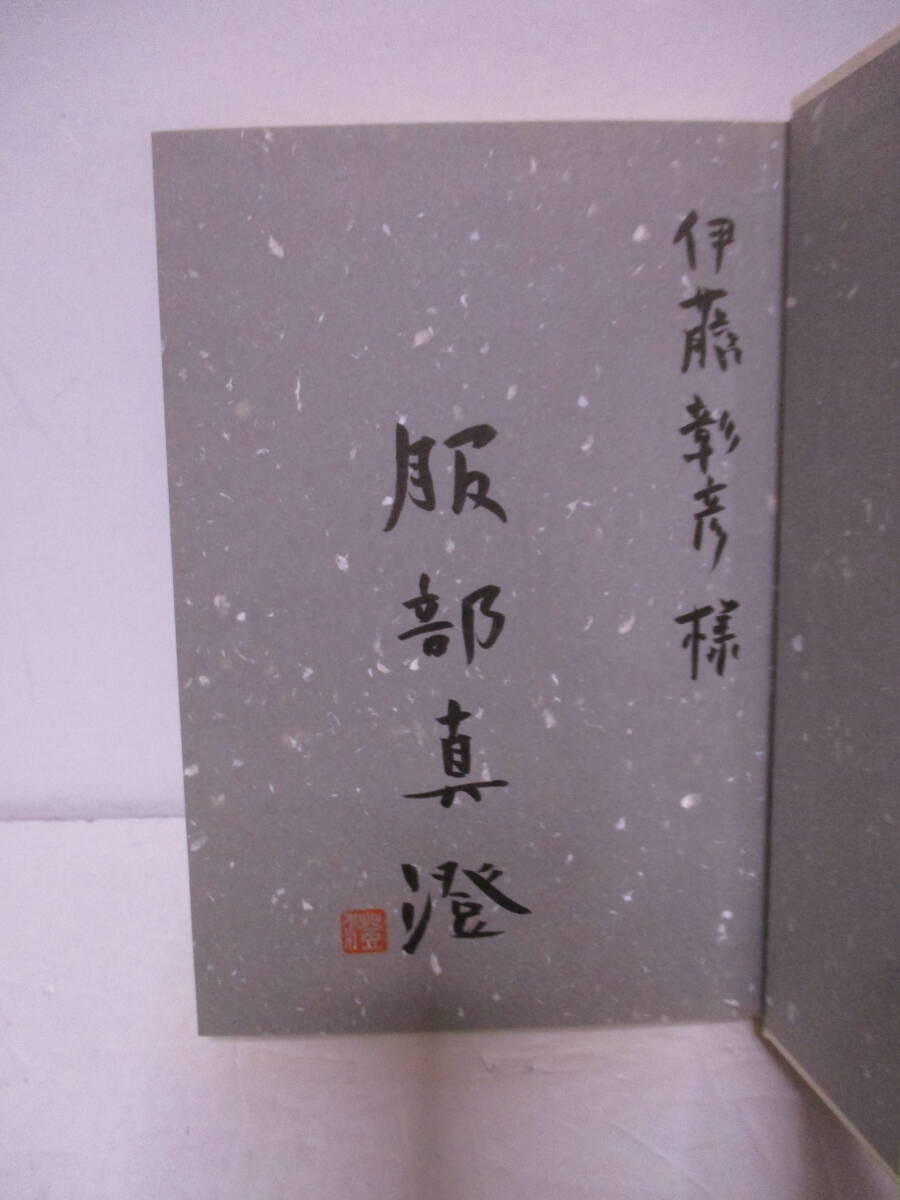 伊藤彰彦様
服部真澄